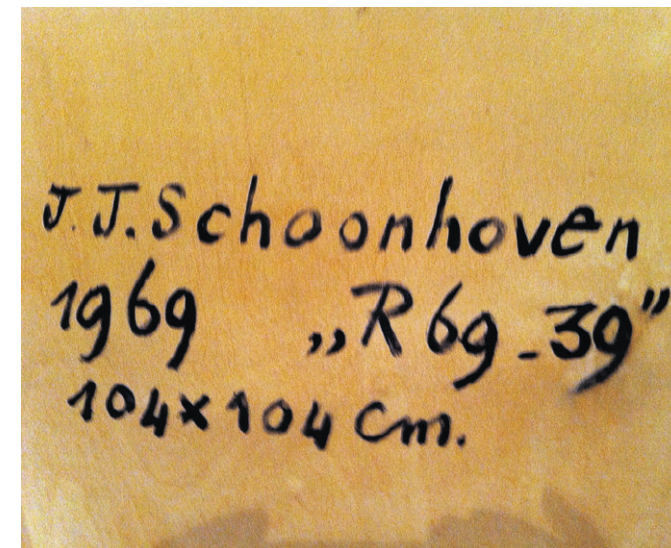 J.J. Schoonhoven
1969 „R69-39”
104x104 cm.